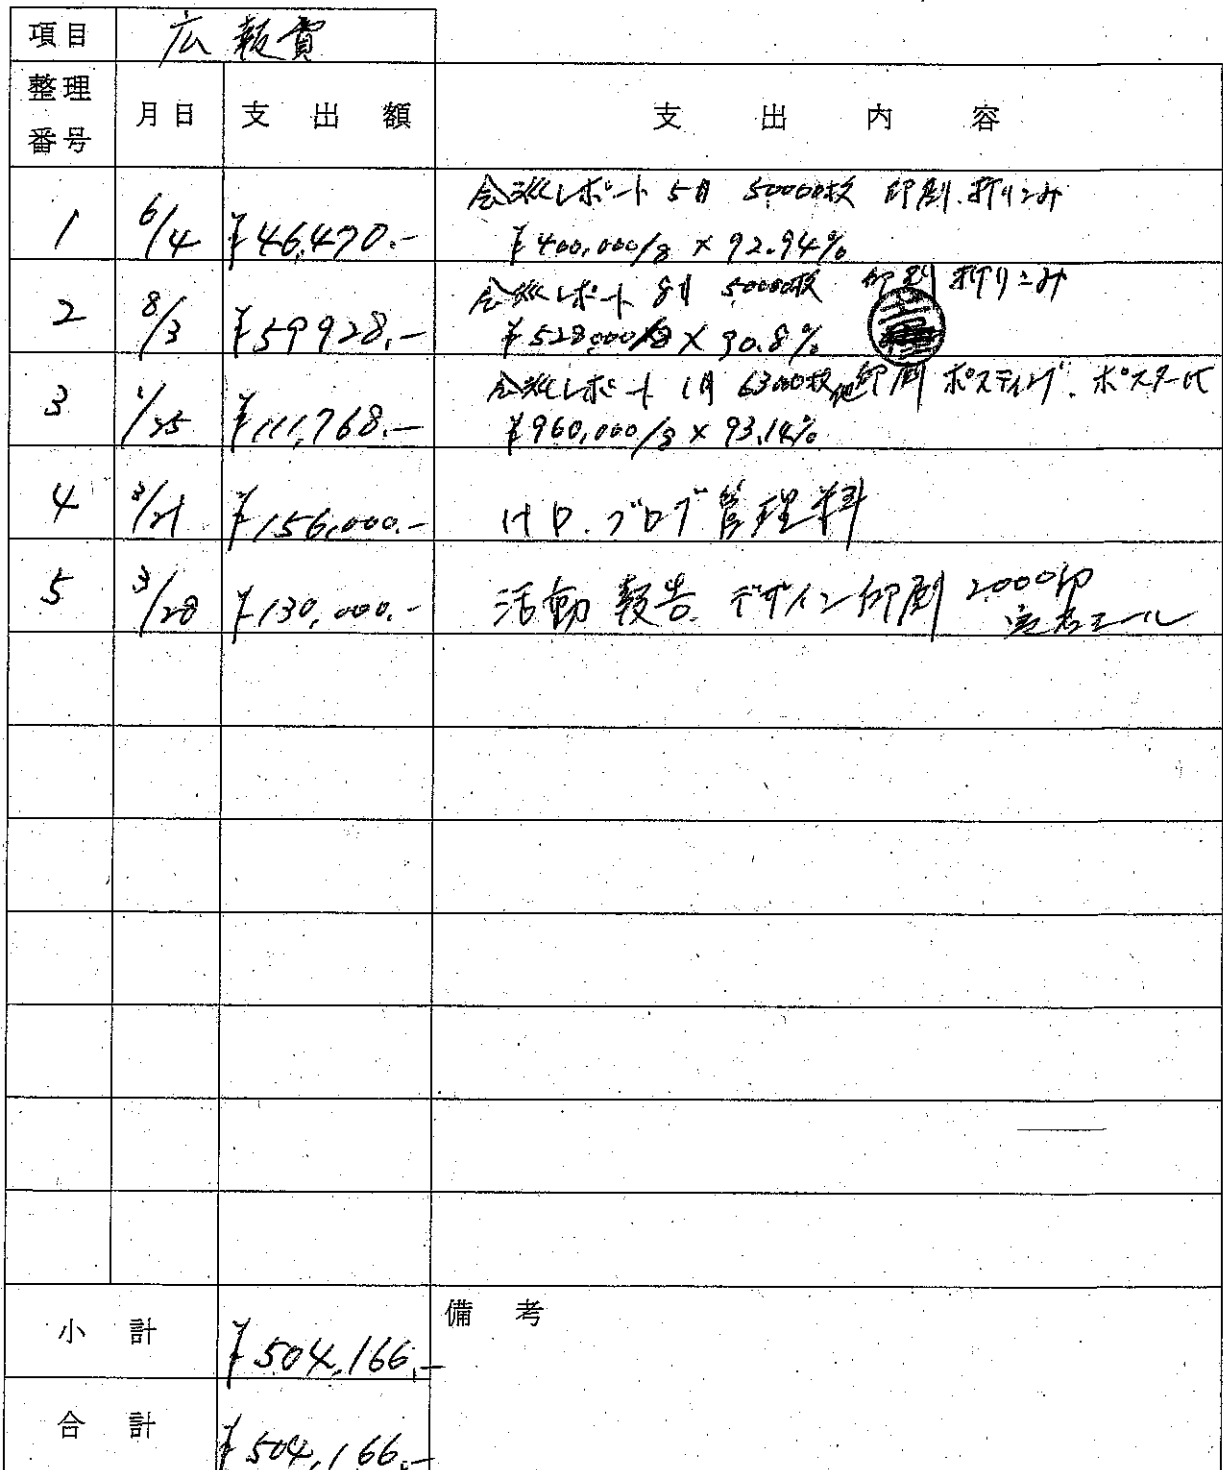 項目 広報費
整理番号 月日 支出額 支出内容
1 6/4 ¥46,470.- 会派レポート 5月 50000枚 印刷.折りこみ
¥400,000/8 × 92.94%
2 8/3 ¥59928.- 会派レポート 8月 50000枚 印刷 折りこみ
¥528000/8 × 90.8%
3 1/25 ¥111,768.- 会派レポート 1月 63000枚 他印刷 ポスティング.ポスター代
¥960,000/8 × 93.14%
4 ¥156,000.- HP.ブログ管理料
5 3/28 ¥130,000.- 活動報告.デザイン印刷 2000部
小計 ¥504,166.- 備考
合計 ¥504,166.-